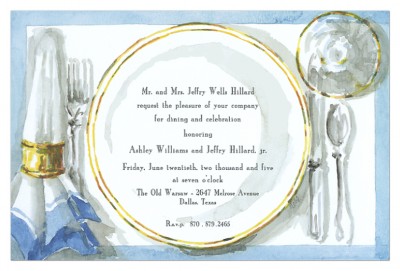 Mr. and Mrs. Jeffry Wells Hillard
request the pleasure of your company
for dining and celebration
honoring
Ashley Williams and Jeffry Hillard, jr.
Friday, June twentieth, two thousand and five
at seven o'clock
The Old Warsaw - 2647 Melrose Avenue
Dallas, Texas
R.s.v.p. 870 . 879.2465